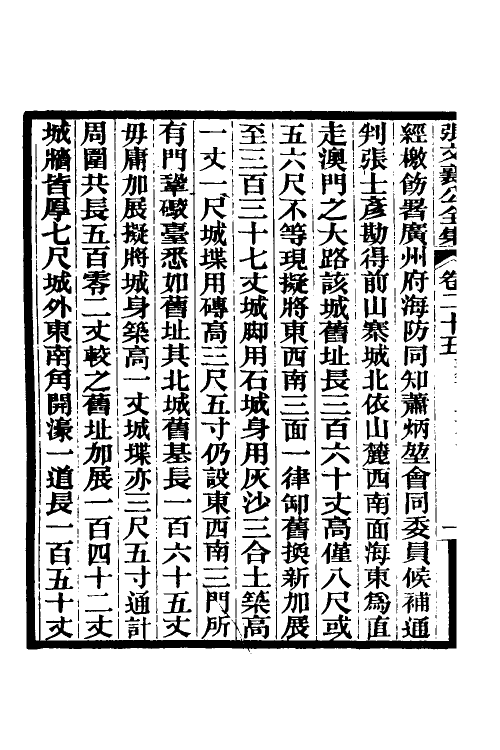 張文襄公全集 卷二十五
經檄飭署廣州府海防同知蕭炳堃會同委員候補通
判張士彥勘得前山寨城北依山麓西南面海東爲直
走澳門之大路該城舊址長三百六十丈高僅八尺或
五六尺不等現擬將東西南三面一律卸舊換新加展
至三百三十七丈城脚用石城身用灰沙三合土築高
一丈一尺城堞用磚高三尺五寸仍設東西南三門所
有門鞏礮臺悉如舊址其北城舊基長一百六十五丈
毋庸加展擬將城身築高一丈城堞亦三尺五寸通計
周圍共長五百零二丈較之舊址加展一百四十二丈
城牆皆厚七尺城外東南角開濠一道長一百五十丈